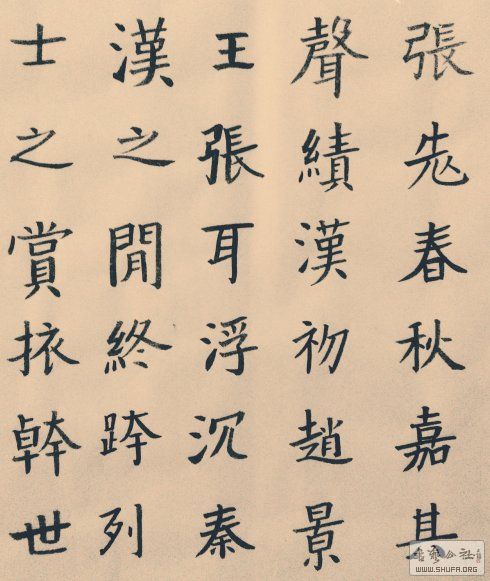 張老春秋嘉其
聲績漢初趙景
王張耳浮沉秦
漢之閒終跨列
士之賞挔幹世
WWW.SHUFA.ORG